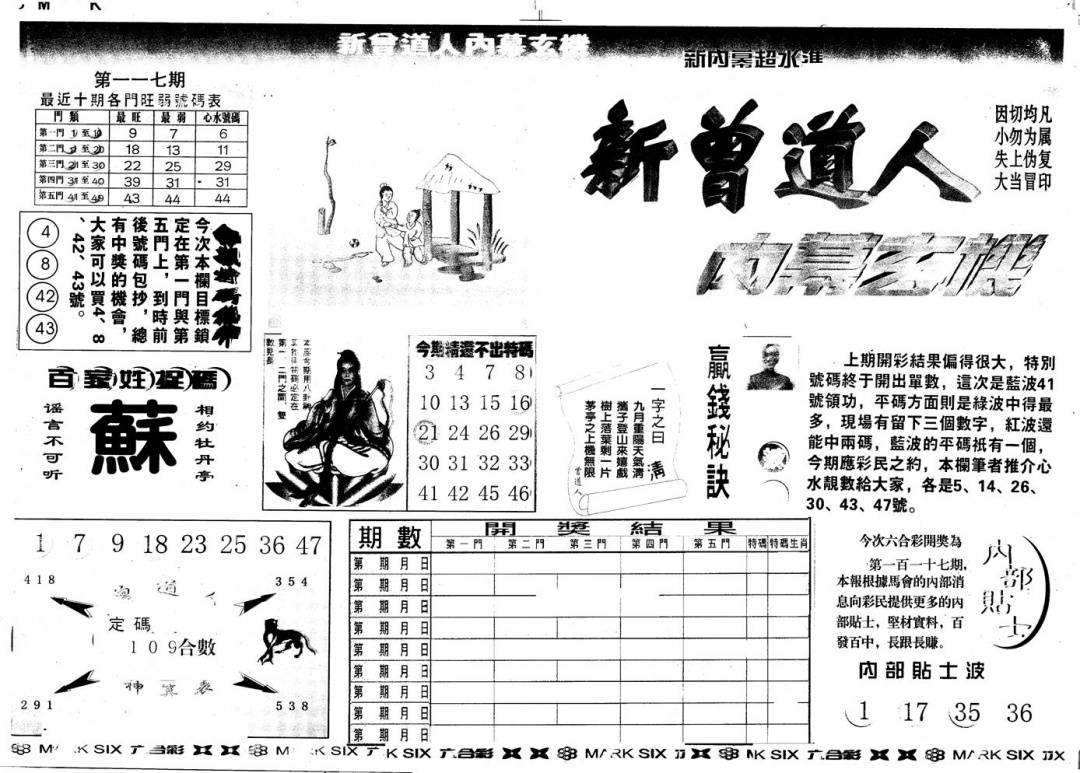 新曾道人內幕玄機
新內幕超水準
第一一七期
最近十期各門旺弱號碼表
門類 最旺 最弱 心水號碼
第一門 1 至 10 9 7 6
第二門 至 20 18 13 11
第三門 21 至 30 22 25 29
第四門 31 至 40 39 31 31
第五門 41 至 49 43 44 44
新曾道人
內幕玄機
因切均凡
小勿为属
失上伪复
大当冒印
今次本欄目標鎖
定在第一門與第
五門上，到時前
後號碼包抄，總
有中獎的機會，
大家可以買4、8
、42、43號。
4
8
42
43
百家姓捉碼
相約牡丹亭
蘇
谣言不可听
第一、二門之間，雙
數見長
今期精選不出特碼
3 4 7 8
10 13 15 16
21 24 26 29
30 31 32 33
41 42 45 46
一字之曰 清
九月重陽天氣清
攜子登山來嬉戲
樹上落葉剩一片
茅亭之上機無限
曾道人
贏錢秘訣
上期開彩結果偏得很大，特別
號碼終于開出單數，這次是藍波41
號領功，平碼方面則是綠波中得最
多，現場有留下三個數字，紅波還
能中兩碼，藍波的平碼衹有一個，
今期應彩民之約，本欄筆者推介心
水靚數給大家，各是5、14、26、
30、43、47號。
1 7 9 18 23 25 36 47
418
354
道人
定碼
109合數
神算表
291
538
期數 開獎結果
第一門 第二門 第三門 第四門 第五門 特碼 特碼生肖
第 期 月 日
第 期 月 日
第 期 月 日
第 期 月 日
第 期 月 日
第 期 月 日
第 期 月 日
第 期 月 日
今次六合彩開獎為
第一百一十七期，
本報根據馬會的內部消
息向彩民提供更多的內
部貼士，堅材實料，百
發百中，長跟長賺。
內部貼士
內部貼士波
1 17 35 36
MARK SIX 六合彩 MARK SIX 六合彩 MARK SIX 六合彩 MARK SIX